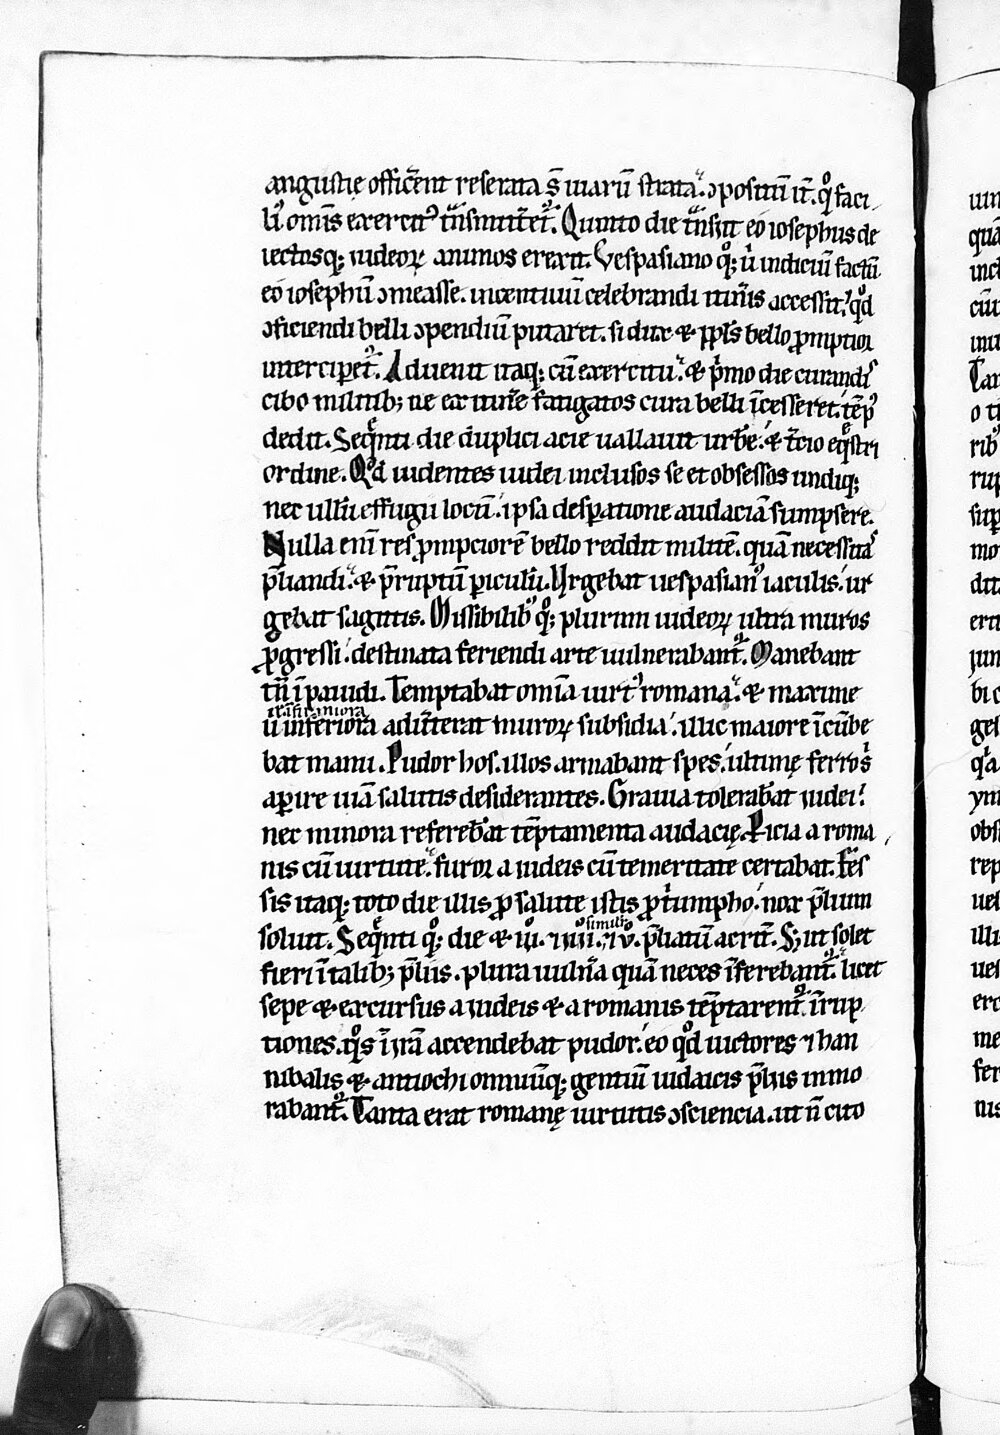 angustię offic̄ent reserata s; uiarū strata. ɔpositiū it̄. q̊ faci
li' om̄s exercit9 t̄nsmitt̄et᷑. Quinto die t̄nsiit eo iosephus de
iectosq; iudeoꝝ animos erexit. Vespasiano q̊; u̇ indiciū factū
eo iosephū ɔmeasse. incentiuū celebrandi itin̄is accessit. qd̊
ɔficiendi belli ɔpendiū putaret. si dux & ppl̄s bello ꝓmptior
intercipet᷑. Aduenit itaq; cū exercitu. & p̓mo die curandis
cibo militib; ne ex itin̄e fatigatos cura belli īcesseret. tēp9
dedit. Seq̄nti die duplici acie uallauit urbē. & t̄cio eq̄stri
ordine. Qd̊ uidentes iudei inclusos se et obsessos undiq;
nec ullū effugii locū. ipsa desꝑatione audaciā sumpsere.
Nulla eni res ꝓmpciorē bello reddit militē. quā necessitas
p̄liandi. & p̄ruptū ꝑiculū. Urgebat uespasian9 iaculis. ur
gebat sagittis. Missibilib9 q̊; plurimi iudeoꝝ ultra muros
ꝓgressi. destinata feriendi arte uulnerabant᷑. Manebant
tn̄ īpauidi. Temptabat om̄ia uirt9 romana. & maxime
u̇ inferiora adiūerat muroꝝ subsidia. illuc maiore īcūbe
bat manu. Pudor hos. illos armabant spes. ultimę ferro s̓
aꝑire uiā salutis desiderantes. Grauia tolerab̄at iudei.
nec minora refereb̄at tēptamenta audacię. Picia a roma
nis cū uirtute. furor a iudeis cū temeritate certabat. Fes
sis itaq; toto die illis ꝓ salute istis ꝓ t̓umpho. nox p̄lium
soluit. Seq̄nti q̊; die & iii̊. iiii̊. simili&#x0304; u̇. p̄liatū acrit̄. S; ut solet
fieri ī talib; p̄liis. plura uuln̄a quā neces īferebant᷑. licet
sepe & excursus a iudeis & a romanis tēptarent᷑ īrup
tiones. q̊s ī irā accendebat pudor. eo qd̊ uictores ⁊ han
nibalis & antiochi omniūq; gentiū iudaicis p̄liis inmo
rabant᷑. Tanta erat romanę uirtutis ɔsciencia. ut n̄ cito